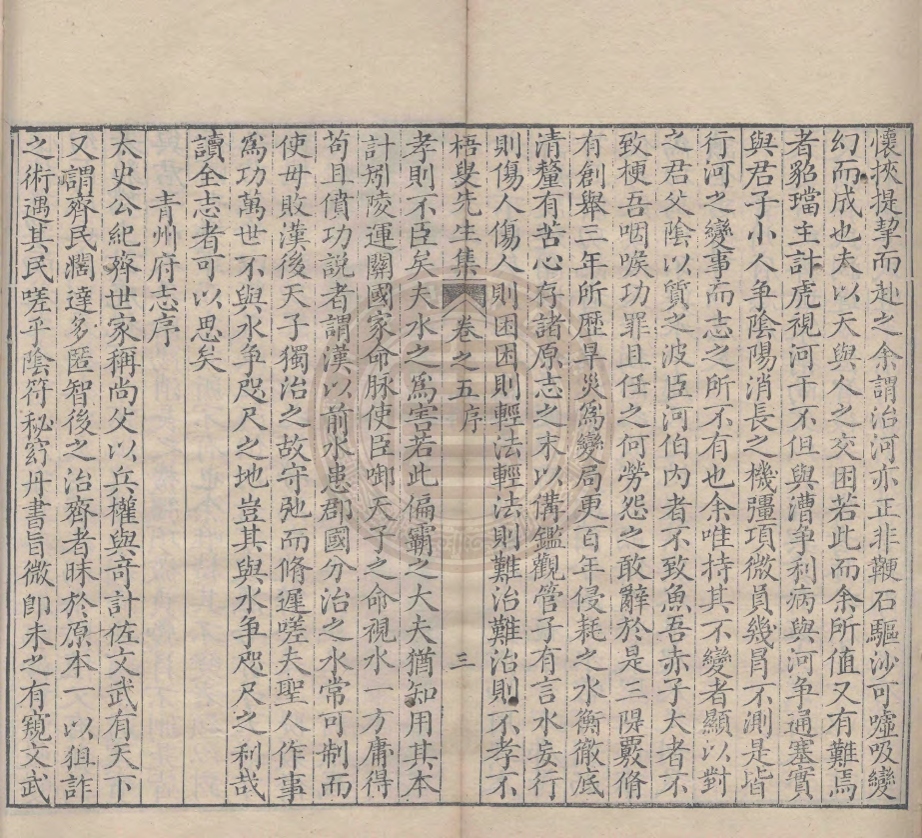 懷挾提挈而赴之余謂治河亦正非鞭石驅沙可噓吸變
幻而成也夫以天與人之交困若此而余所值又有難焉
者貂璫主計虎視河干不但與漕争利病與河争通塞實
與君子小人争陰陽消長之機彊項微員幾冐不測是皆
行河之變事而志之所不有也余唯持其不變者顯以對
之君父陰以質之波臣河伯内者不致魚吾赤子大者不
致梗吾咽喉功罪且任之何勞怨之敢辭於是三隄覈脩
有創舉三年所歷旱災爲變局更百年侵耗之水衡徹底
清釐有苦心存諸原志之末以備鑑觀管子有言水妄行
則傷人傷人則困困則輕法輕法則難治難治則不孝不
梧叟先生集 卷之五序 三
孝則不臣矣夫水之爲害若此偏霸之大夫猶知用其本
計矧陵運關國家命脉使臣啣天子之命視水一方庸得
苟且僨功説者謂漢以前水患郡國分治之水常可制而
使毋敗漢後天子獨治之故守弛而脩遲嗟夫聖人作事
爲功萬世不與水争咫尺之地豈其與水争咫尺之利哉
讀全志者可以思矣
青州府志序
太史公紀齊世家稱尚父以兵權與奇計佐文武有天下
又謂齊民濶達多匿智後之治齊者昧於原本一以狙詐
之術遇其民嗟乎陰符秘窈丹書旨微卽未之有窺文武